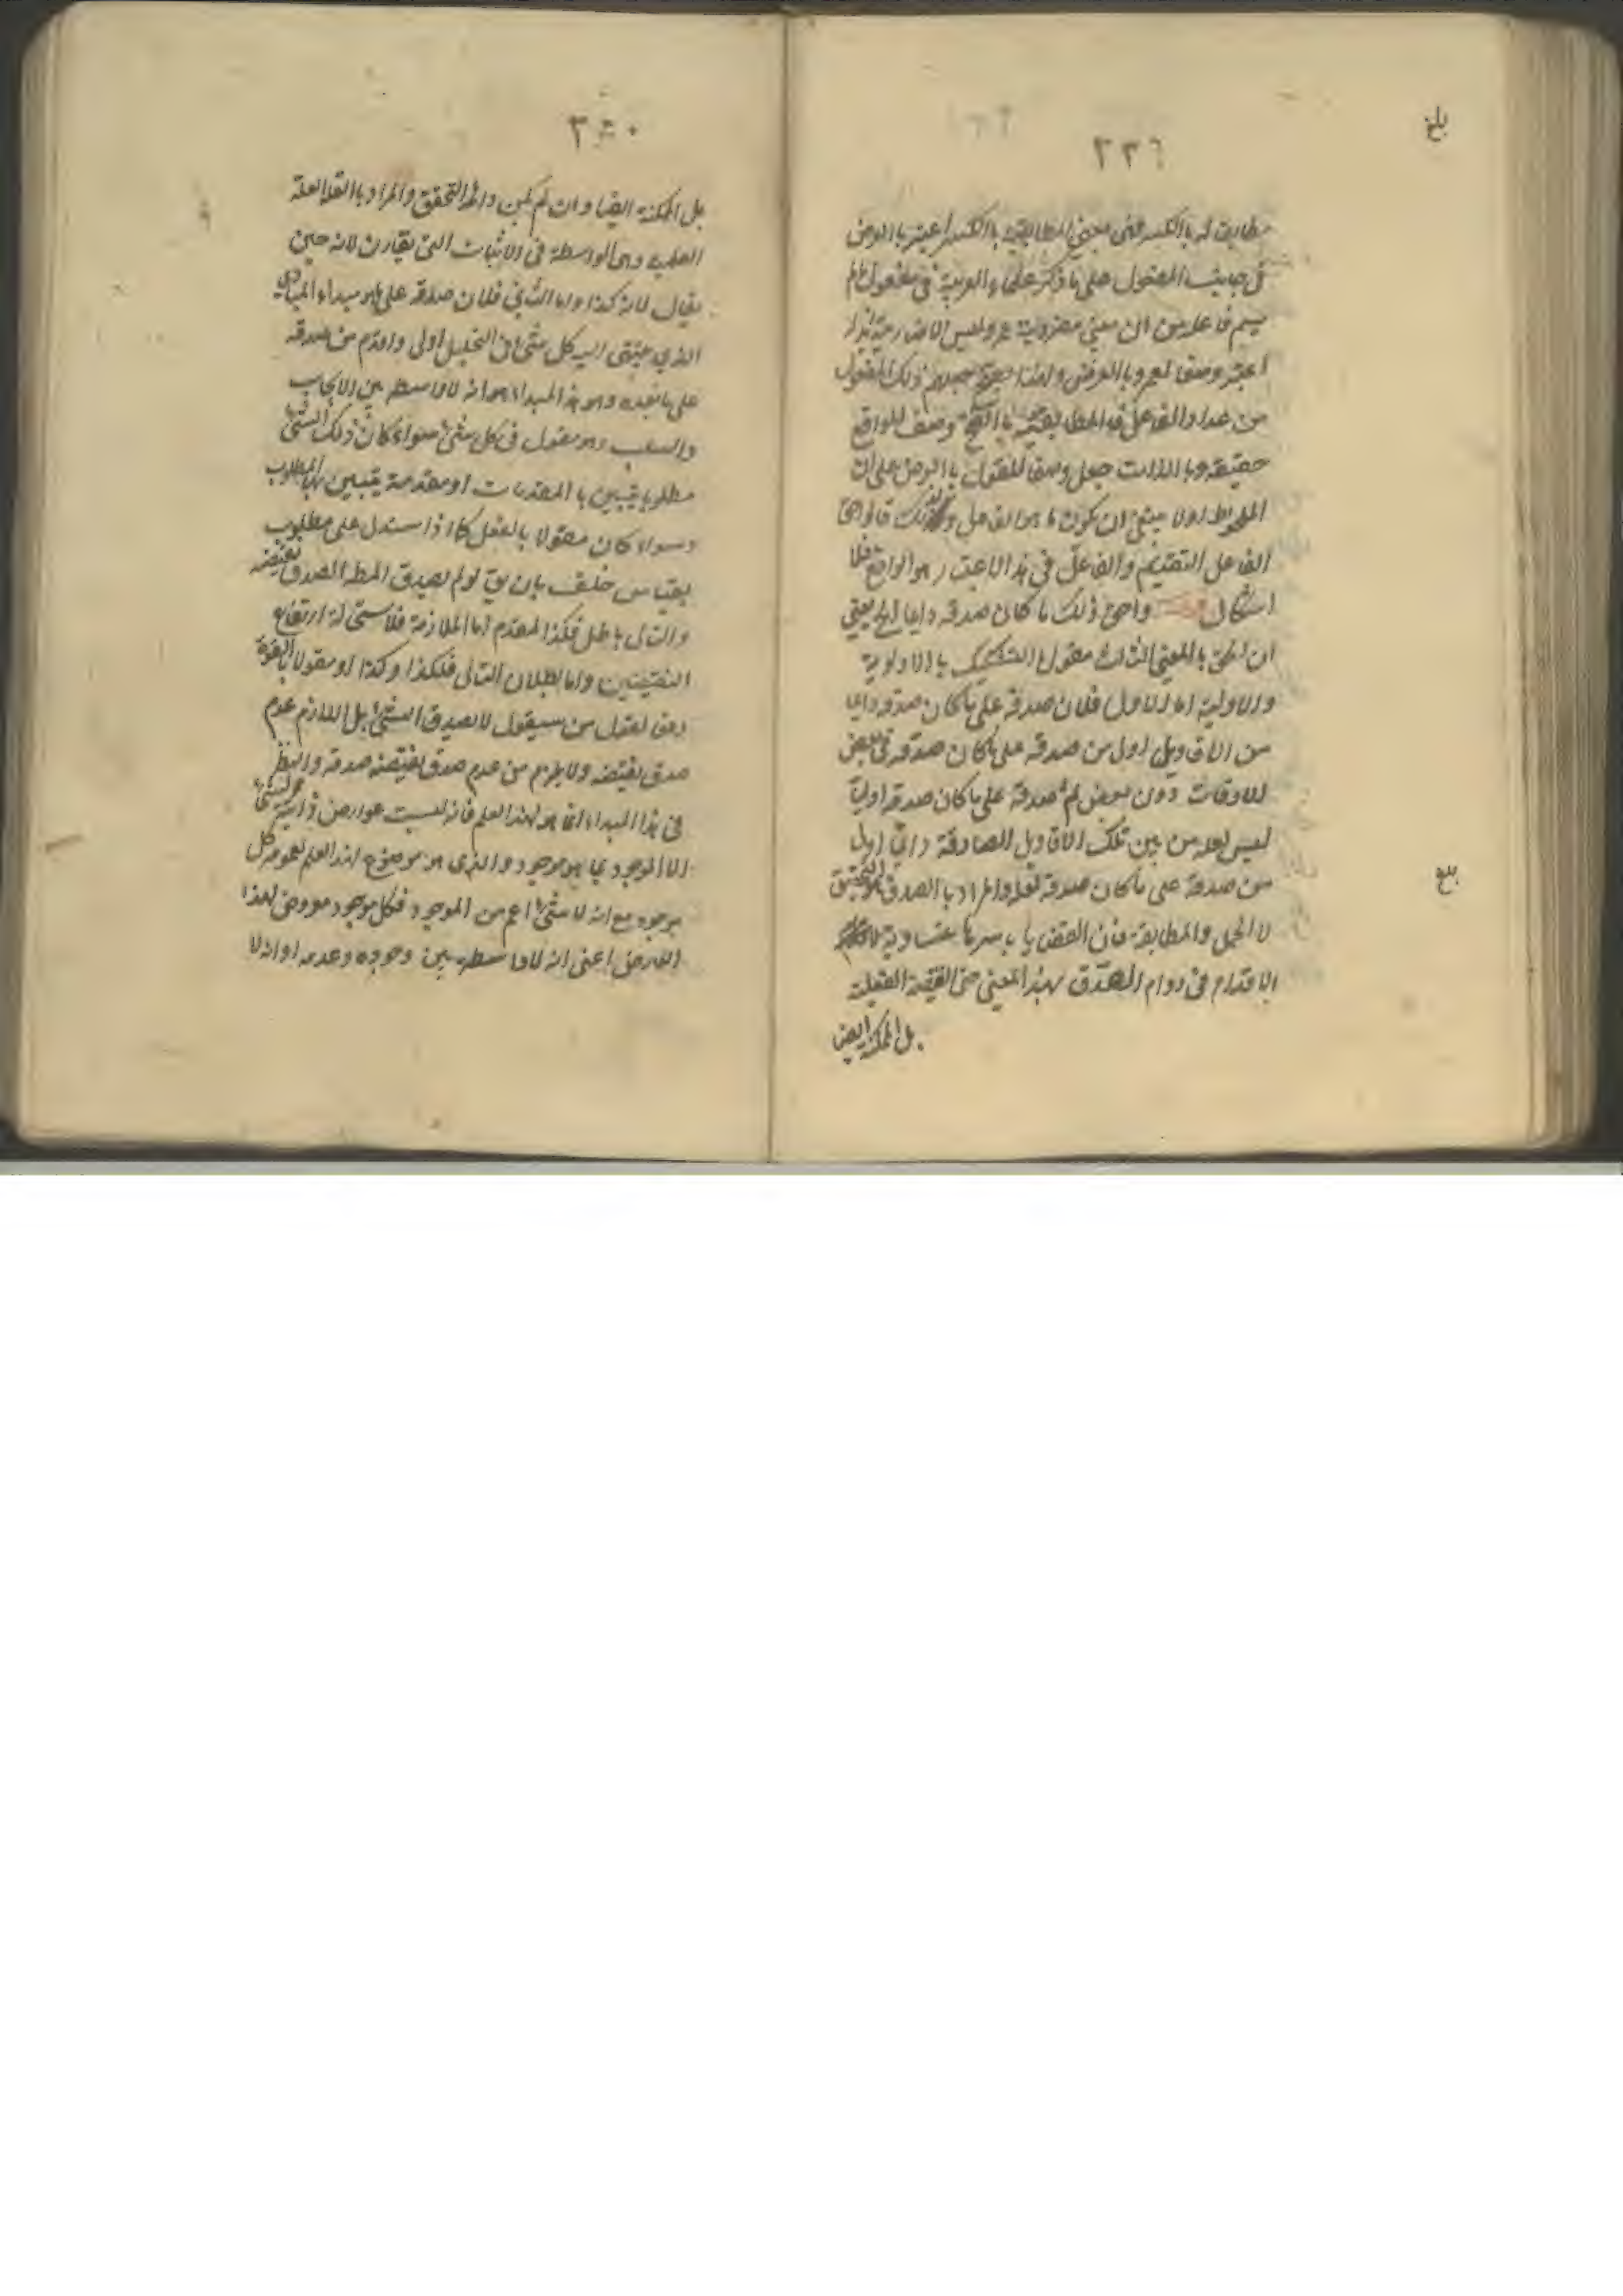 بلغ
٣٣٦
مطابقت له بالكسر فمن معنى المطابقة بالكسر اعتبر بالعرض
في جانب المفعول على ما ذكر علماء العربية في مفعول ما لم
يسم فاعله من ان معنى مضروبية عمرو ليس الا ضاربية زيد
اعتبر وصفا لعمرو بالعرض ولهذا جعلهم ذلك المفعول
من عداد الفاعل فالمطابقية بالفتح وصف للواقع
حقيقة وبالذات جعل وصفا للقول بالعرض على ان
الملحوظ اولا ينبغي ان يكون ما هو الفاعل ولذلك قالوا حق
الفاعل التقديم والفاعل في هذا الاعتبار هو الواقع فلا
اشكال قوله واحق ذلك ما كان صدقه دايما الخ يعني
ان الحق بالمعنى الثالث مقول بالتشكيك بالاولوية
والاولية اما الاول فلان صدقه على ما كان صدقه دايما
من الاقاويل اولى من صدقه على ما كان صدقه في بعض
الاوقات دون بعض ثم صدقه على ما كان صدقه اوليا
ليس لعلة من بين تلك الاقاويل الصادقة دايما اولى
من صدقه على ما كان صدقه لعلة والمراد بالصدق هو التحقق
بلغ
لا الحمل والمطابقة فان القضايا باسرها متساوية
الاقدام في دوام الصدق بهذا المعنى حتى القضية الفعلية
بل الممكنة ايضا
٣٥٠
بل الممكنة ايضا وان لم يكن دائم التحقق والمراد بالعلة العلة
العلمية وهي الواسطة في الاثبات التي يقارن لانه حين
يقال لانه كذا واما الثاني فلان صدقه على ما هو مبداء المبادى
الذي ينتهى اليه كل شئ في التحليل اولى واقدم من صدقه
على ما بعده وهو هذا المبداء هو انه لا واسطة بين الايجاب
والسلب وهو مقول في كل شئ سواء كان ذلك الشئ
مطلوبا يتبين بالمقدمات او مقدمة يتبين بها المطلوب
وسواء كان مقولا بالفعل كما اذا استدل على مطلوب
بقياس خلف بان يق لو لم يصدق المط لصدق نقيضه
والتالى باطل فكذا المقدم اما الملازمة فلاستحالة ارتفاع
النقيضين واما بطلان التالى فلكذا وكذا او مقولا بالقوة
دفعا لقول من سيقول لا يصدق الشئ بل اللازم عدم
صدق نقيضه ولا يلزم من عدم صدق نقيضه صدقه والنظر
في هذا المبداء انما هو لهذا العلم فانه ليست عوارض ذاتية لشئ
الا الموجود بما هو موجود والذى هو موضوع لهذا العلم لعمومه كل
موجود مع انه لا شئ اعم من الموجود فكل موجود معروض لهذا
العارض اعنى انه لا واسطة بين وجوده وعدمه او انه لا